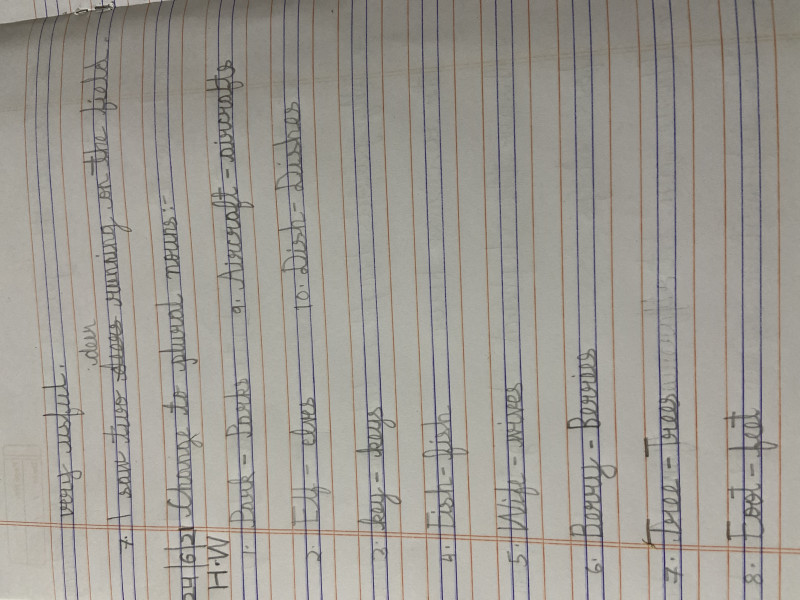 very useful.
deer
7. I saw two deers running on the field.
24/6/21 Change to plural nouns:-
H.W
1. Park - Parks 9. Aircraft - aircrafts
2. Elf - elves 10. Dish - Dishes
3. key - keys
4. Fish - fish
5. Wife - wives
6. Berry - Berries
7. Tree - Trees
8. Foot - feet